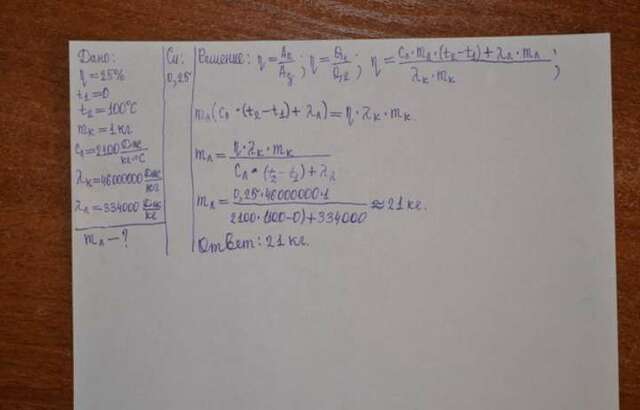 Дано:
η = 25%
t₁ = 0
t₂ = 100°C
mк = 1 кг
Cл = 2100 Дж/кг·°C
λк = 46000000 Дж/кг
λл = 334000 Дж/кг
mл — ?
Си:
0,25
Решение: η = Aп/Aз; η = Q1/Q2; η = (Cл·mл·(t₂−t₁) + λл·mл)/(λк·mк);
mл(Cл·(t₂−t₁) + λл) = η·λк·mк.
mл = (η·λк·mк)/(Cл·(t₂−t₁) + λл)
mл = (0,25·46000000·1)/(2100·(100−0)+334000) ≈ 21 кг.
Ответ: 21 кг.